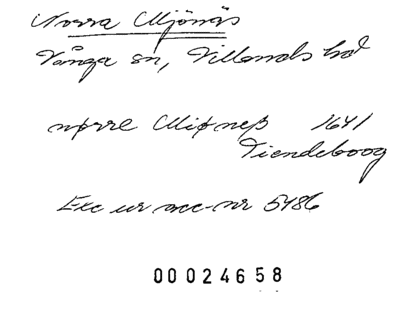 Norra Mjönäs
Vånga sn, Villands hd
nørre Miøneß 1641
Tiendeboog
Exc ur acc-nr 5486
00024658